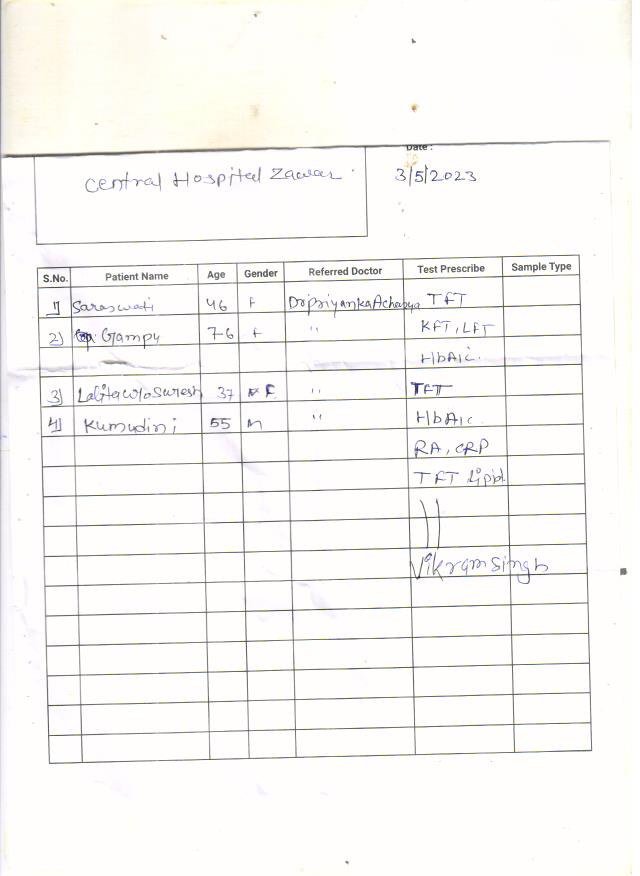 Date :
Central Hospital Zawar
3/5/2023
S.No. Patient Name Age Gender Referred Doctor Test Prescribe Sample Type
1) Saraswati 46 F Dr priyanka Acharya TFT
2) Gampy 76 F " KFT, LFT
HbA1c.
3) Lalita w/o Suresh 37 F " TFT
4) Kumudini 55 M " HbA1c
RA, CRP
TFT lipid
Vikram Singh